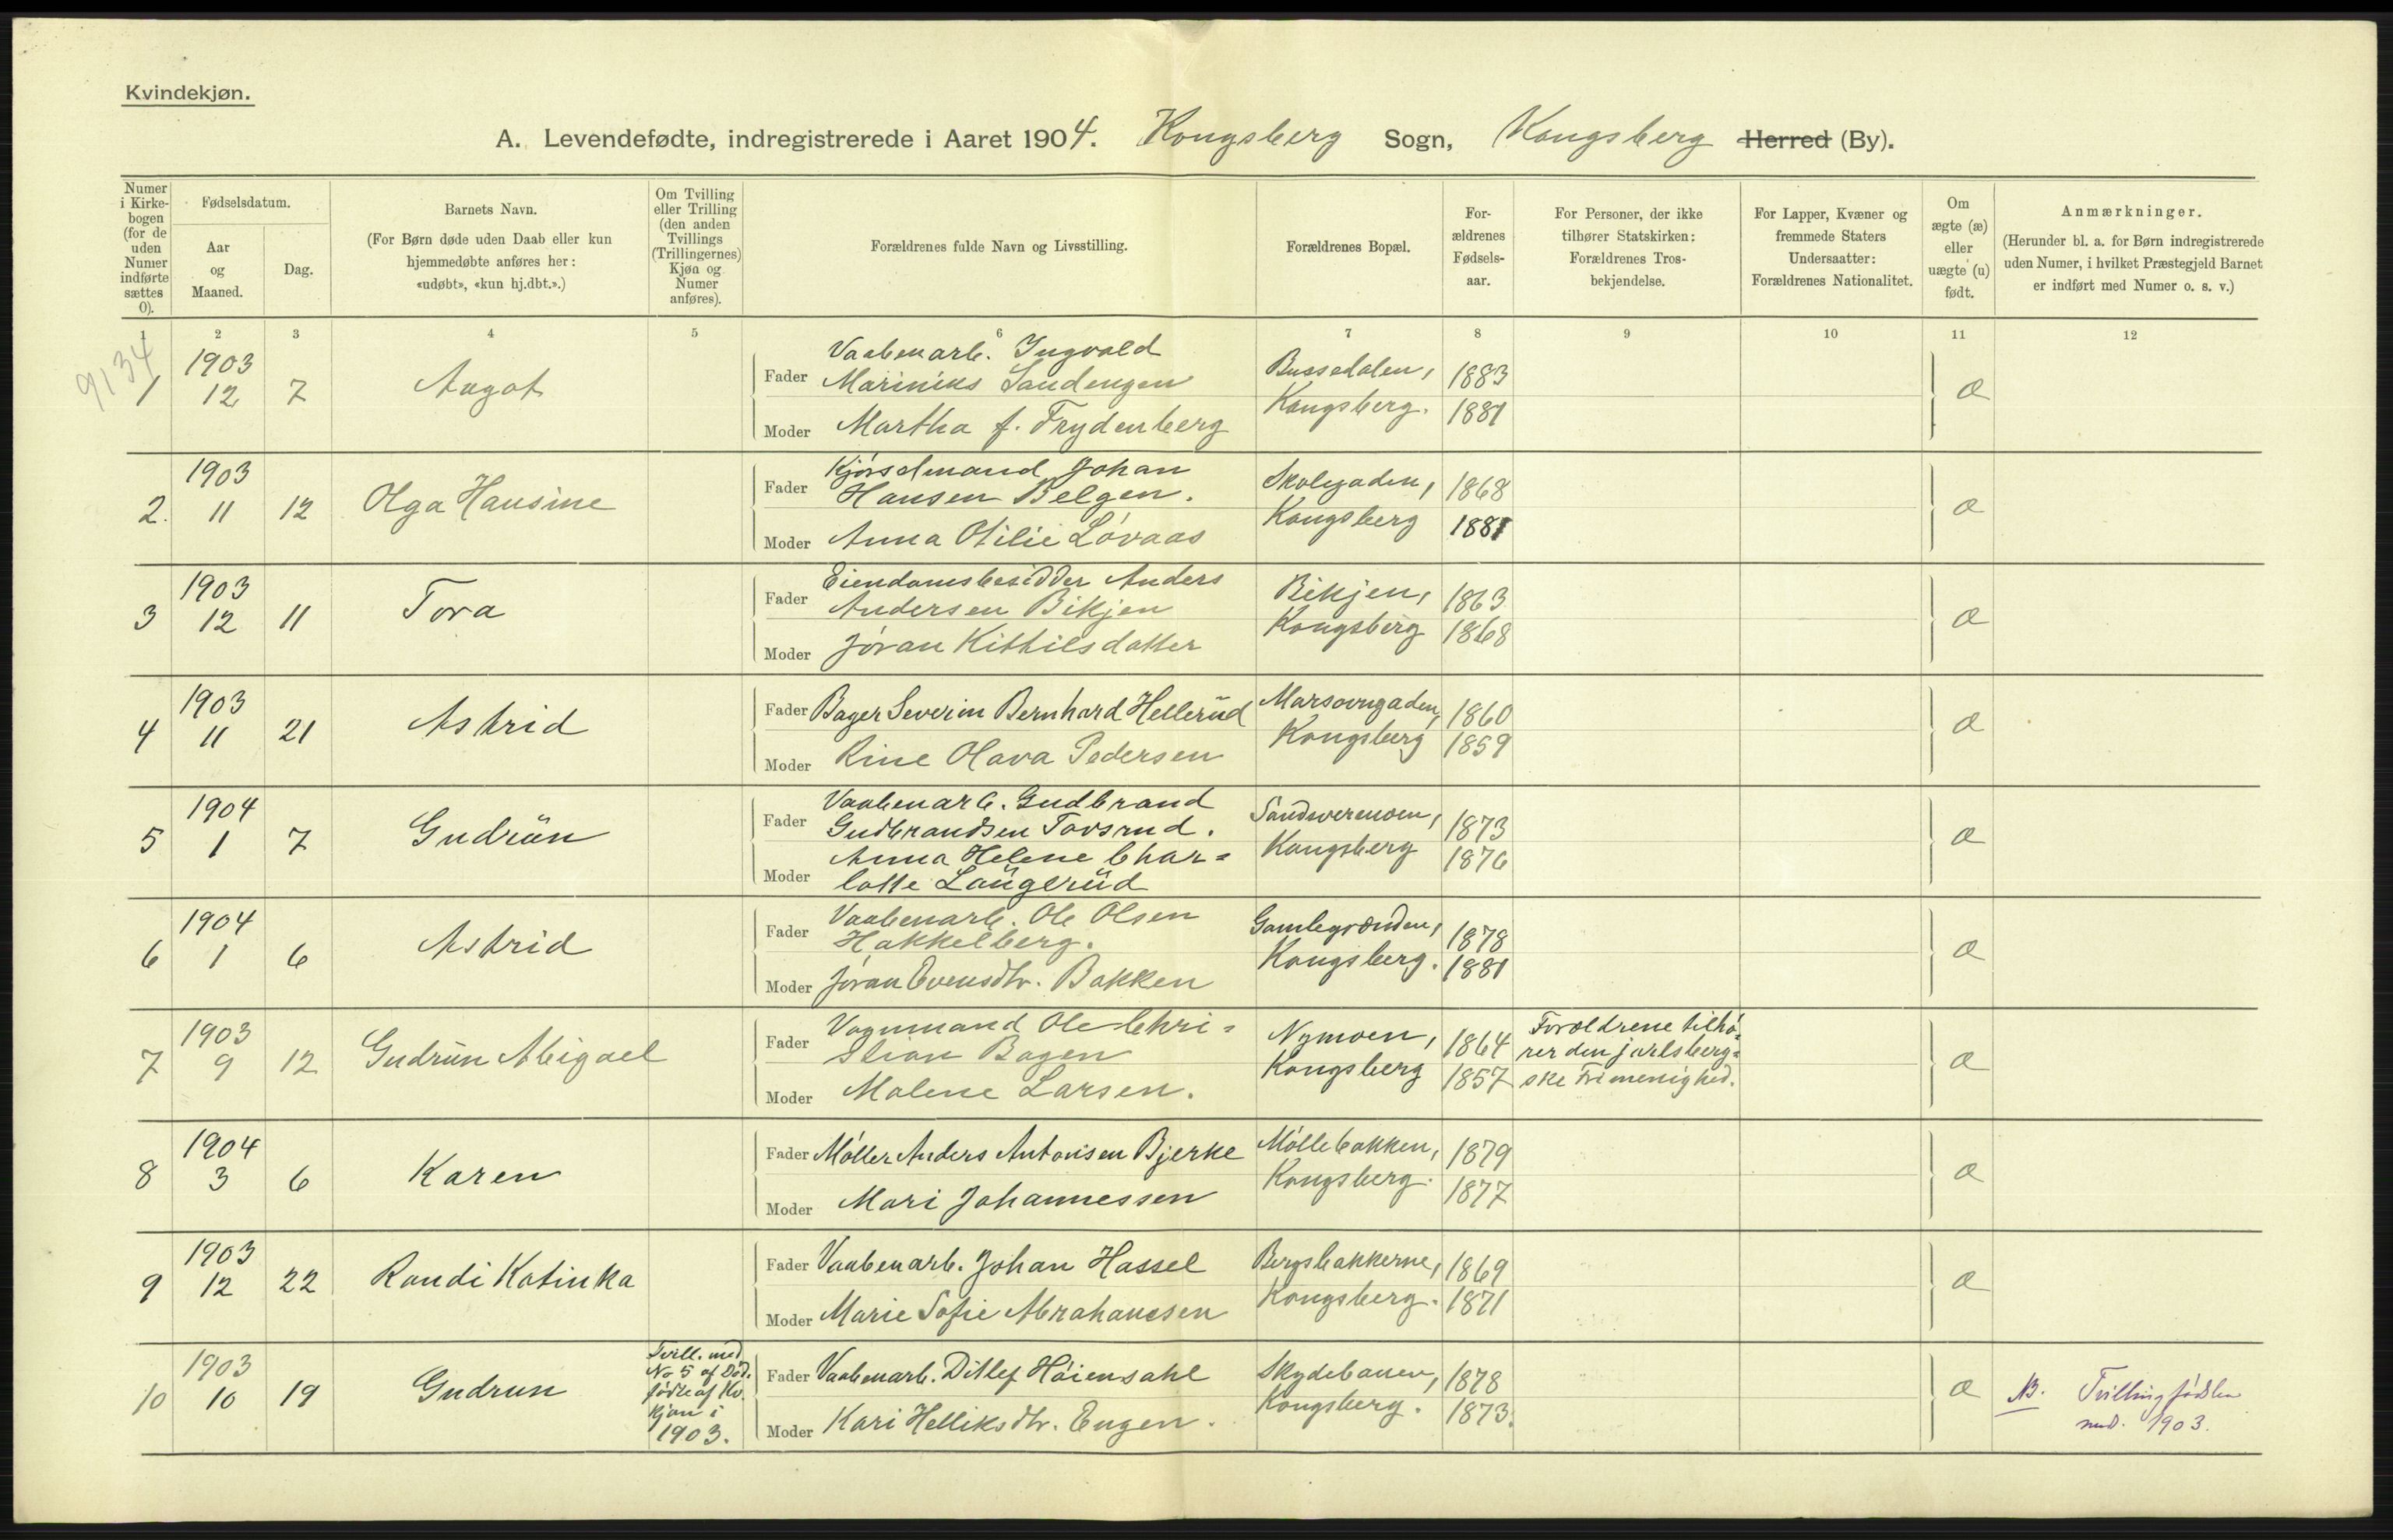 Kvindekjøn.
A. Levendefødte, indregistrerede i Aaret 1904. Kongsberg Sogn, Kongsberg Herred (By).
Numer i Kirkebogen (for de uden Numer indførte sættes 0).
Fødselsdatum.
Aar og Maaned.
Dag.
Barnets Navn.
(For Børn døde uden Daab eller kun hjemmedøbte anføres her: «udøbt», «kun hj.dbt.».)
Om Tvilling eller Trilling (den anden Tvillings (Trillingernes) Kjøn og Numer anføres).
Forældrenes fulde Navn og Livsstilling.
Forældrenes Bopæl.
For-
ældrenes
Fødsels-
aar.
For Personer, der ikke tilhører Statskirken: Forældrenes Tros-
bekjendelse.
For Lapper, Kvæner og fremmede Staters Undersaatter: Forældrenes Nationalitet.
Om ægte (æ) eller uægte (u) født.
Anmærkninger.
(Herunder bl. a. for Børn indregistrerede uden Numer, i hvilket Præstegjeld Barnet er indført med Numer o. s. v.)
1 2 3 4 5 6 7 8 9 10 11 12
9134
1 1903 12 7 Aagot
Fader Vaabenarb. Ingvald
Marinius Sandengen
Moder Martha f. Frydenberg
Bussedalen,
Kongsberg.
1883
1881
æ
2. 1903 11 12 Olga Hansine
Fader Kjørselmand Johan
Hansen Belgen.
Moder Anna Otilie Løvaas
Skolegaden,
Kongsberg
1868
1881
æ
3 1903 12 11 Tora
Fader Eiendomsbesidder Anders
Andersen Bikjen
Moder Jøran Kittilsdatter
Bikjen,
Kongsberg
1863
1868
æ
4 1903 11 21 Astrid
Fader Bager Severin Bernhard Hellerud
Moder Rine Olava Pedersen
Marsovngaden,
Kongsberg
1860
1859
æ
5 1904 1 7 Gudrun
Fader Vaabenarb. Gudbrand
Gudbrandsen Tovsrud.
Moder Anna Helene Char-
lotte Laugerud
Sandsveremoen,
Kongsberg
1873
1876
æ
6 1904 1 6 Astrid
Fader Vaabenarb. Ole Olsen
Hakkelberg.
Moder Jøran Evensdtr. Bakken
Gamlegrænden,
Kongsberg.
1878
1881
æ
7 1903 9 12 Gudrun Abigael
Fader Vognmand Ole Chri-
stian Bagen
Moder Malene Larsen.
Nymoen,
Kongsberg
1864
1857
Forældrene tilhø-
rer den jarlsberg-
ske Frimenighed.
æ
8 1904 3 6 Karen
Fader Møller Anders Antonisen Bjerke
Moder Mari Johannessen
Møllebakken,
Kongsberg.
1879
1877
æ
9 1903 12 22 Randi Katinka
Fader Vaabenarb. Johan Hassel
Moder Marie Sofie Abrahamsen
Bergsbakkerne,
Kongsberg.
1869
1871
æ
10 1903 10 19 Gudrun
Tvill. med
No 5 af Død-
fødte af Kv.
kjøn i
1903.
Fader Vaabenarb. Ditlef Høiensahl
Moder Kari Helliksdtr. Engen.
Skydebanen,
Kongsberg.
1878
1873.
æ
NB. Tvillingfødslen
med. 1903.